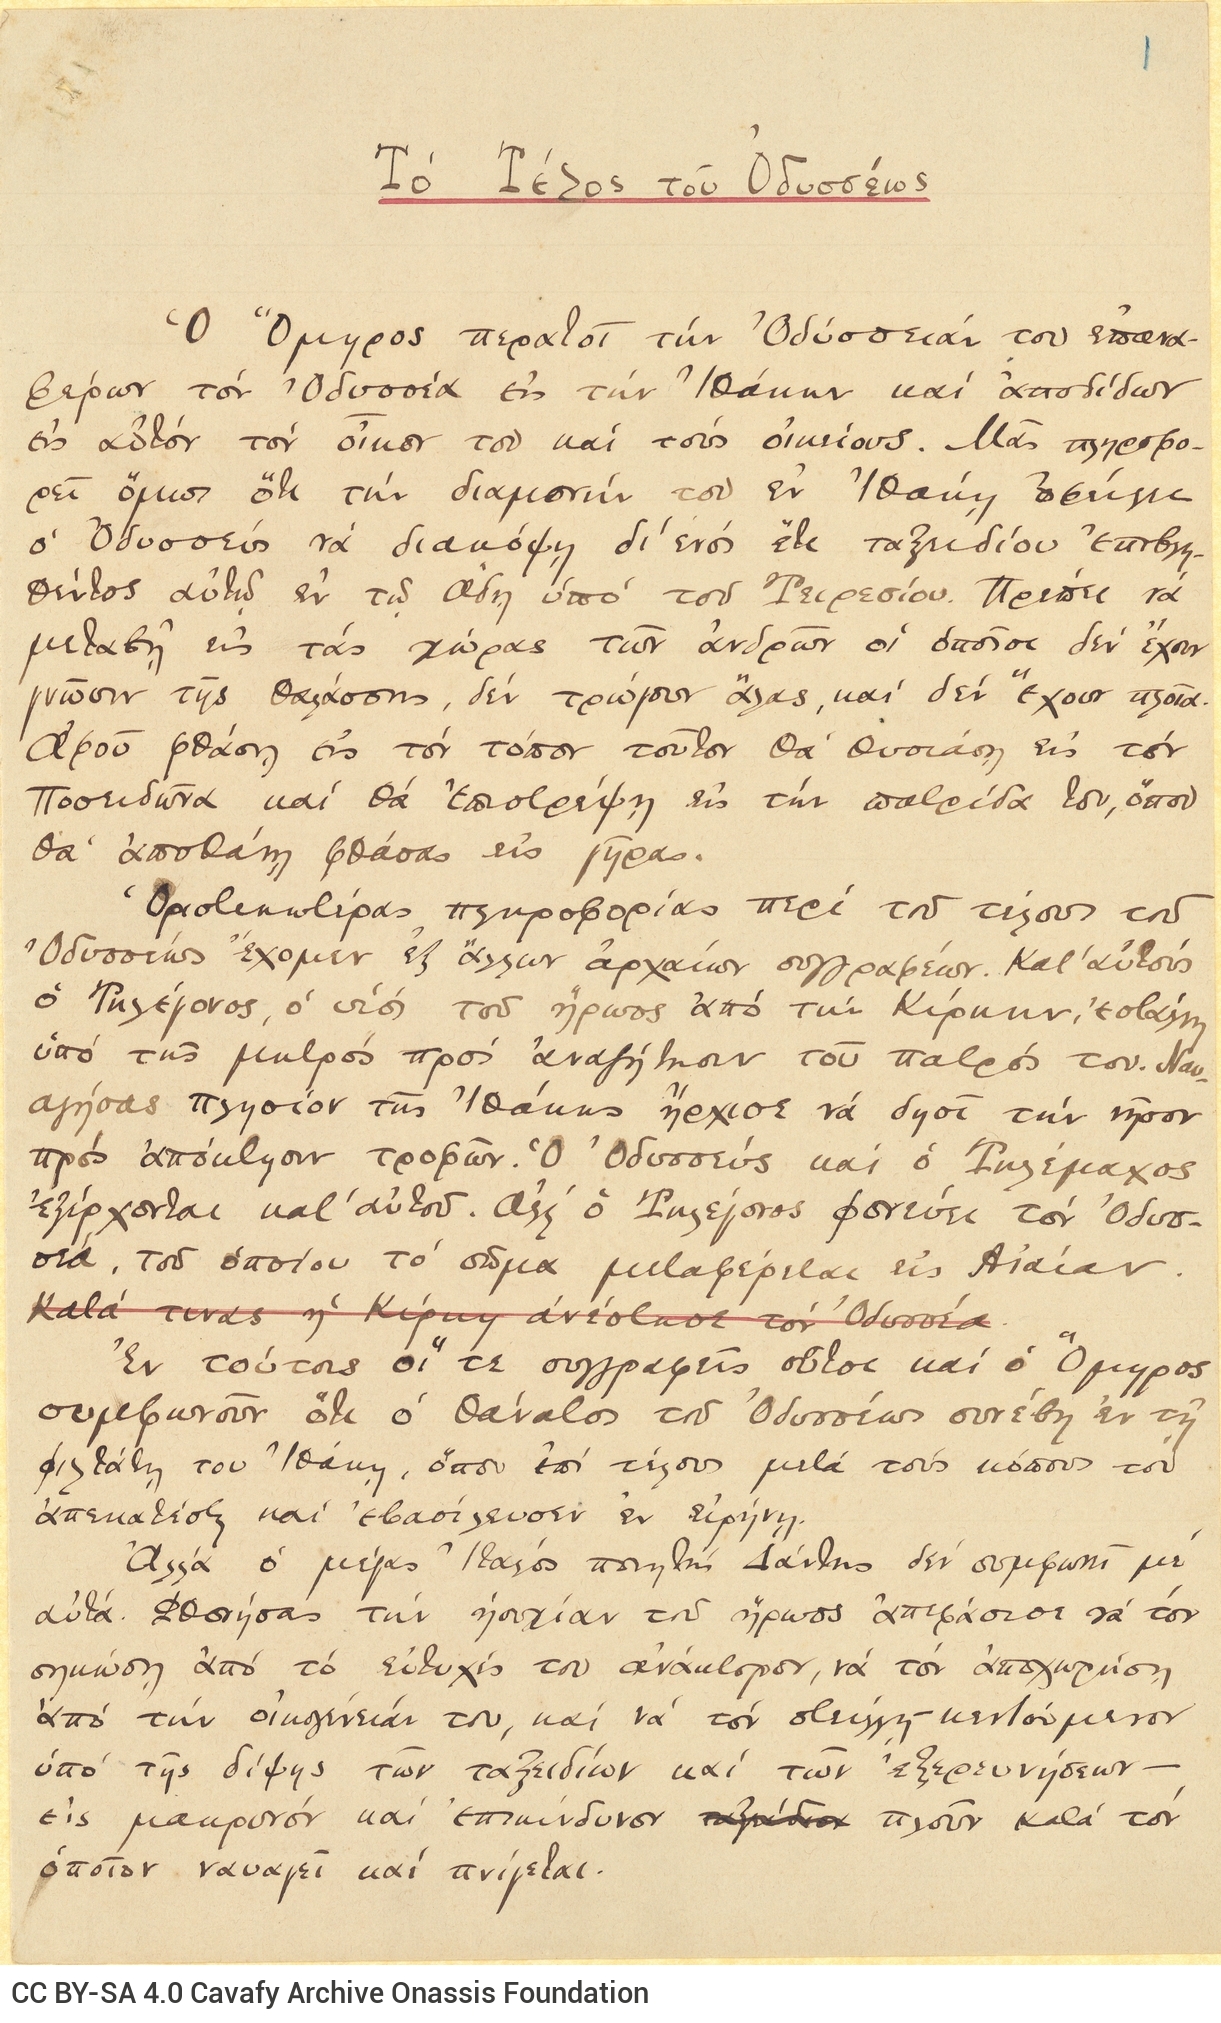 1
Τό Τέλος τοῦ Ὀδυσσέως
Ὁ Ὅμηρος περατοῖ τήν Ὀδύσσειάν του ἐπανα-
φέρων τόν Ὀδυσσέα εἰς τήν Ἰθάκην καί ἀποδίδων
εἰς αὐτόν τόν οἶκον του καί τούς οἰκείους. Μᾶς πληροφο-
ρεῖ ὅμως ὅτι τήν διαμονήν του ἐν Ἰθάκῃ ὤφειλε
ὁ Ὀδυσσεύς νά διακόψῃ δι' ἑνός ἔτι ταξειδίου ἐπιβλη-
θέντος αὐτῷ ἐν τῷ ᾍδῃ ὑπό τοῦ Τειρεσίου. Πρέπει νά
μεταβῇ εἰς τάς χώρας τῶν ἀνδρῶν οἱ ὁποῖοι δέν ἔχουν
γνῶσιν τῆς θαλάσσης, δέν τρώγουν ἅλας, καί δέν ἔχουν πλοῖα.
Ἀφοῦ φθάσῃ εἰς τόν τόπον τοῦτον θά θυσιάσῃ εἰς τόν
Ποσειδῶνα καί θά ἐπιστρέψῃ εἰς τήν πατρίδα του, ὅπου
θά ἀποθάνῃ φθάσας εἰς γῆρας.
Ὁριστικωτέρας πληροφορίας περί τοῦ τέλους τοῦ
Ὀδυσσέως ἔχομεν ἐξ ἄλλων ἀρχαίων συγγραφέων. Κατ' αὐτούς
ὁ Τηλέγονος, ὁ υἱός τοῦ ἥρωος ἀπό τήν Κίρκην, ἐστάλη
ὑπό τῆς μητρός πρός ἀναζήτησιν τοῦ πατρός του. Ναυ-
αγήσας πλησίον τῆς Ἰθάκης ἤρχισε νά δηοῖ τήν νῆσον
πρός ἀπόκτησιν τροφῶν. Ὁ Ὀδυσσεύς καί ὁ Τηλέμαχος
ἐξέρχονται κατ' αὐτοῦ. Ἀλλ' ὁ Τηλέγονος φονεύει τόν Ὀδυσ-
σέα, τοῦ ὁποίου τό σῶμα μεταφέρεται εἰς Αἰαίαν.
Κατά τινας ἡ Κίρκη ἀνέστησε τόν Ὀδυσσέα.
Ἐν τούτοις οἵ τε συγγραφεῖς οὗτοι καί ὁ Ὅμηρος
συμφωνοῦν ὅτι ὁ θάνατος τοῦ Ὀδυσσέως συνέβη ἐν τῇ
φιλτάτῃ του Ἰθάκῃ, ὅπου ἐπί τέλους μετά τούς κόπους του
ἀπεκατέστη καί ἐβασίλευσεν ἐν εἰρήνῃ.
Ἀλλά ὁ μέγας Ἰταλός ποιητής Δάντης δέν συμφωνεῖ μέ
αὐτά. Φθονήσας τήν ἡσυχίαν τοῦ ἥρωος ἀπεφάσισε νά τόν
σηκώσῃ ἀπό τό εὐτυχές του ἀνάκτορον, νά τόν ἀποχωρήσῃ
ἀπό τήν οἰκογένειάν του, καί νά τόν στείλῃ – κεντούμενον
ὑπό τῆς δίψης τῶν ταξειδίων καί τῶν ἐξερευνήσεων –
εἰς μακρυνόν καί ἐπικίνδυνον ταξείδιον πλοῦν κατά τόν
ὁποῖον ναυαγεῖ καί πνίγεται.
CC BY-SA 4.0 Cavafy Archive Onassis Foundation